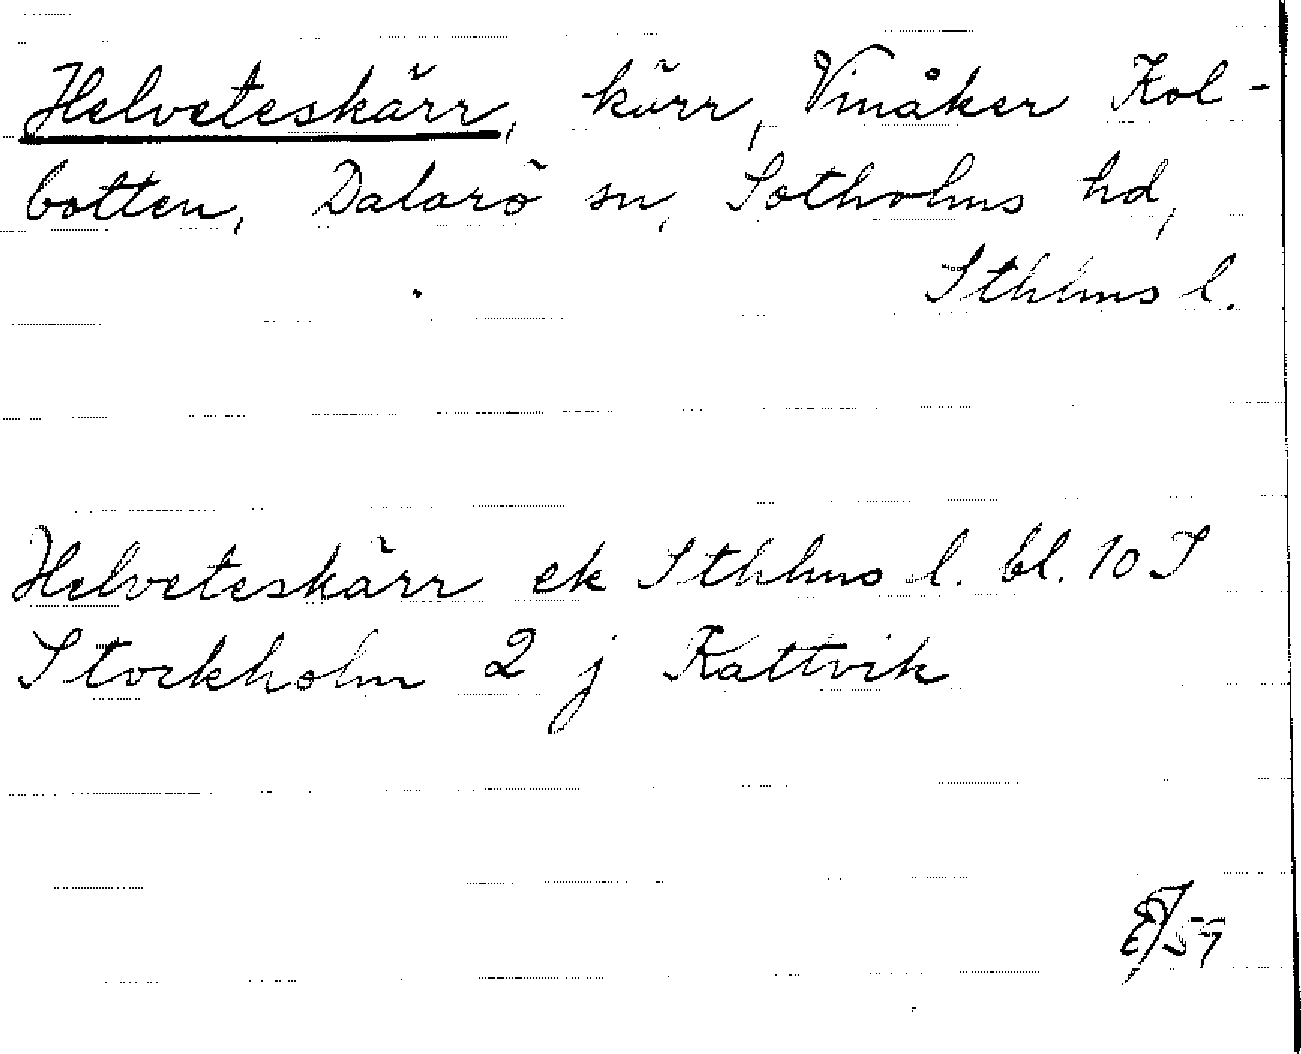 Helveteskärr, kärr, Vinåker Kol-
botten, Dalarö sn, Sotholms hd,
Sthlms l.
Helveteskärr ek Sthlms l. bl. 10 S
Stockholm 2 j Kattvik
/59